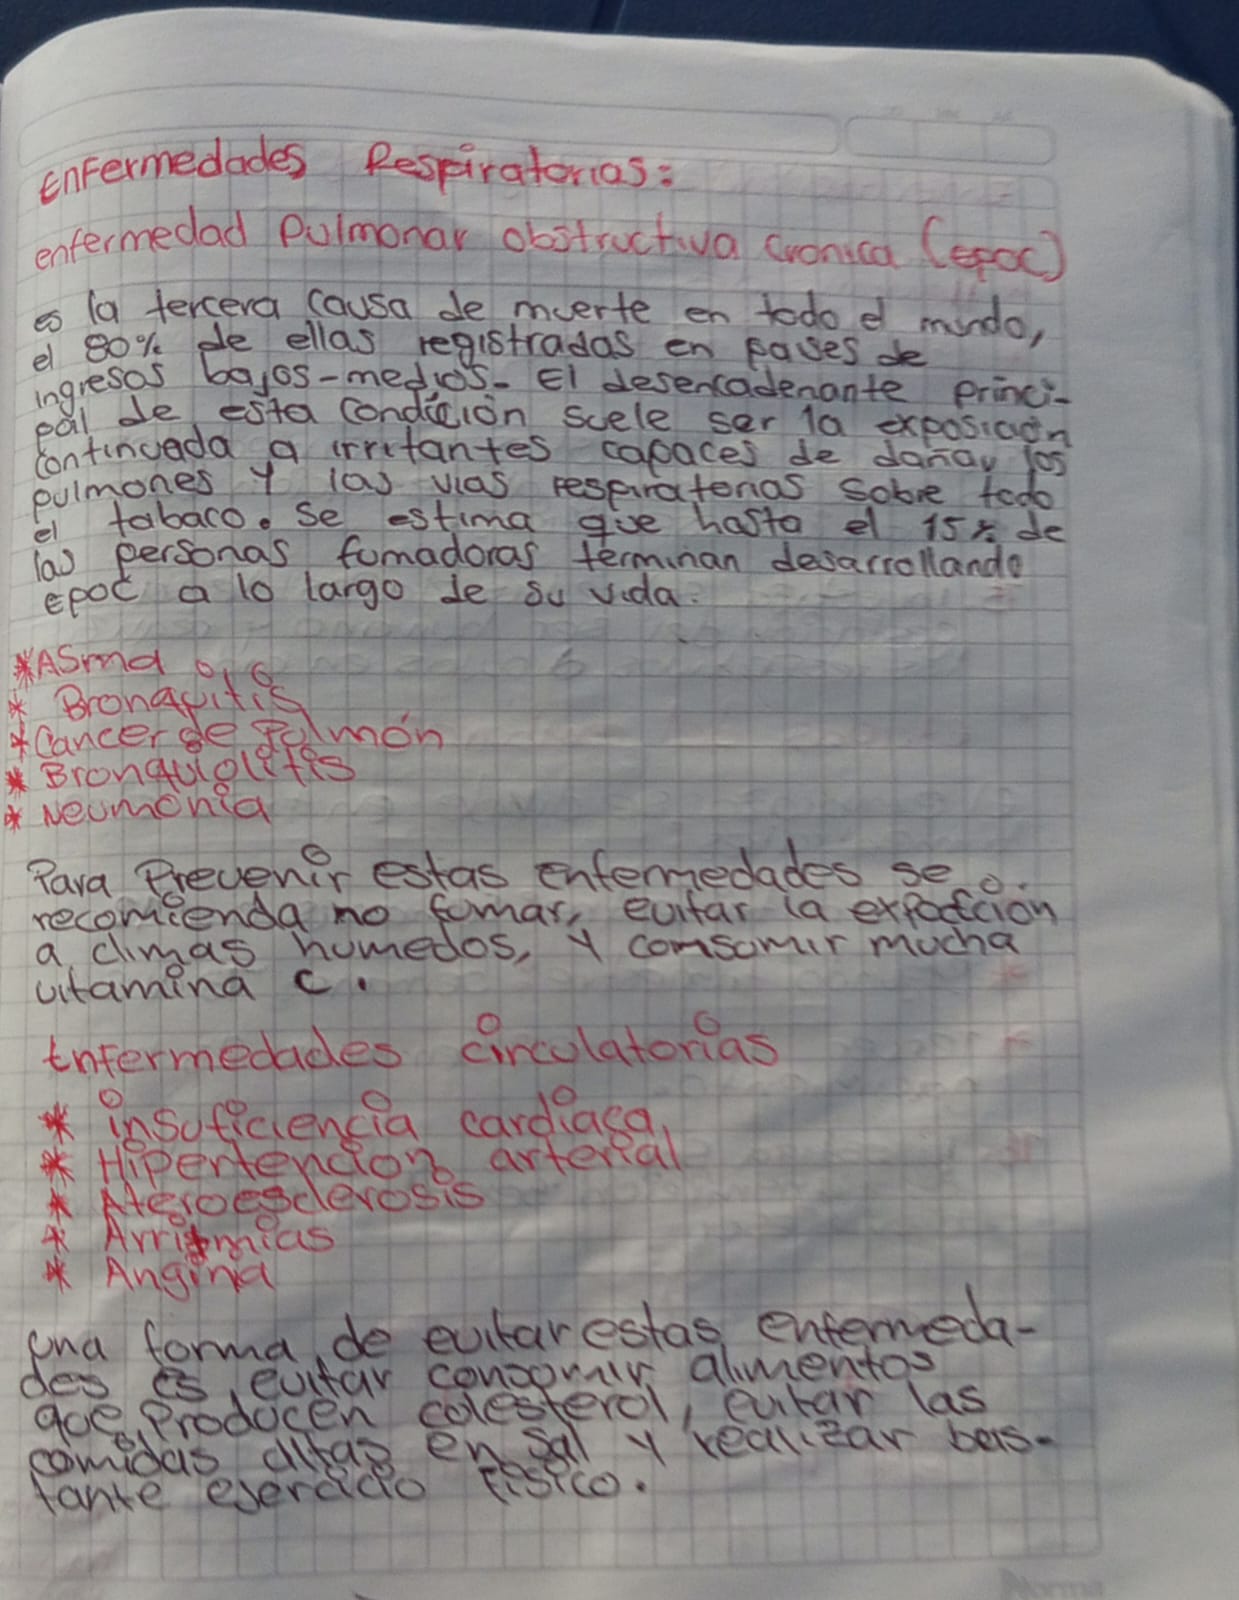 Enfermedades Respiratorias:
enfermedad Pulmonar obstructiva cronica (epoc)
es la tercera causa de muerte en todo el mundo,
el 80% de ellas registradas en paises de
ingresos bajos-medios. El desencadenante princi-
pal de esta condición suele ser la exposición
continuada a irritantes capaces de dañar los
pulmones y las vias respiratorias sobre todo
el tabaco. Se estima que hasta el 15% de
las personas fumadoras terminan desarrollando
Epoc a lo largo de su vida.
*Asma
* Bronquitis
*Cancer de Pulmón
* Bronquiolitis
* Neumonia
Para Prevenir estas enfermedades se
recomienda no fumar, evitar la
a climas humedos, y comsumir mucha
vitamina C.
Enfermedades circulatorias
* insuficiencia cardiaca,
* Hipertencion arterial
* Ateroesclerosis
* Arritmias
* Angina
una forma de evitar estas enfermeda-
des es, evitar consumir alimentos
que Producen colesterol, evitar las
comidas altas en sal y realizar bas-
tante ejercicio fisico.
Norma